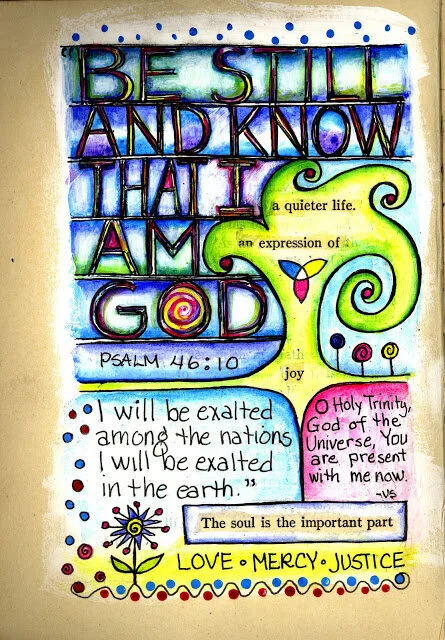 BE STILL
AND KNOW
THAT I
AM
GOD
PSALM 46:10
a quieter life.
an expression of
joy
I will be exalted
among the nations
I will be exalted
in the earth."
O Holy Trinity,
God of the
Universe, You
are present
with me now.
-VS
The soul is the important part
LOVE • MERCY • JUSTICE